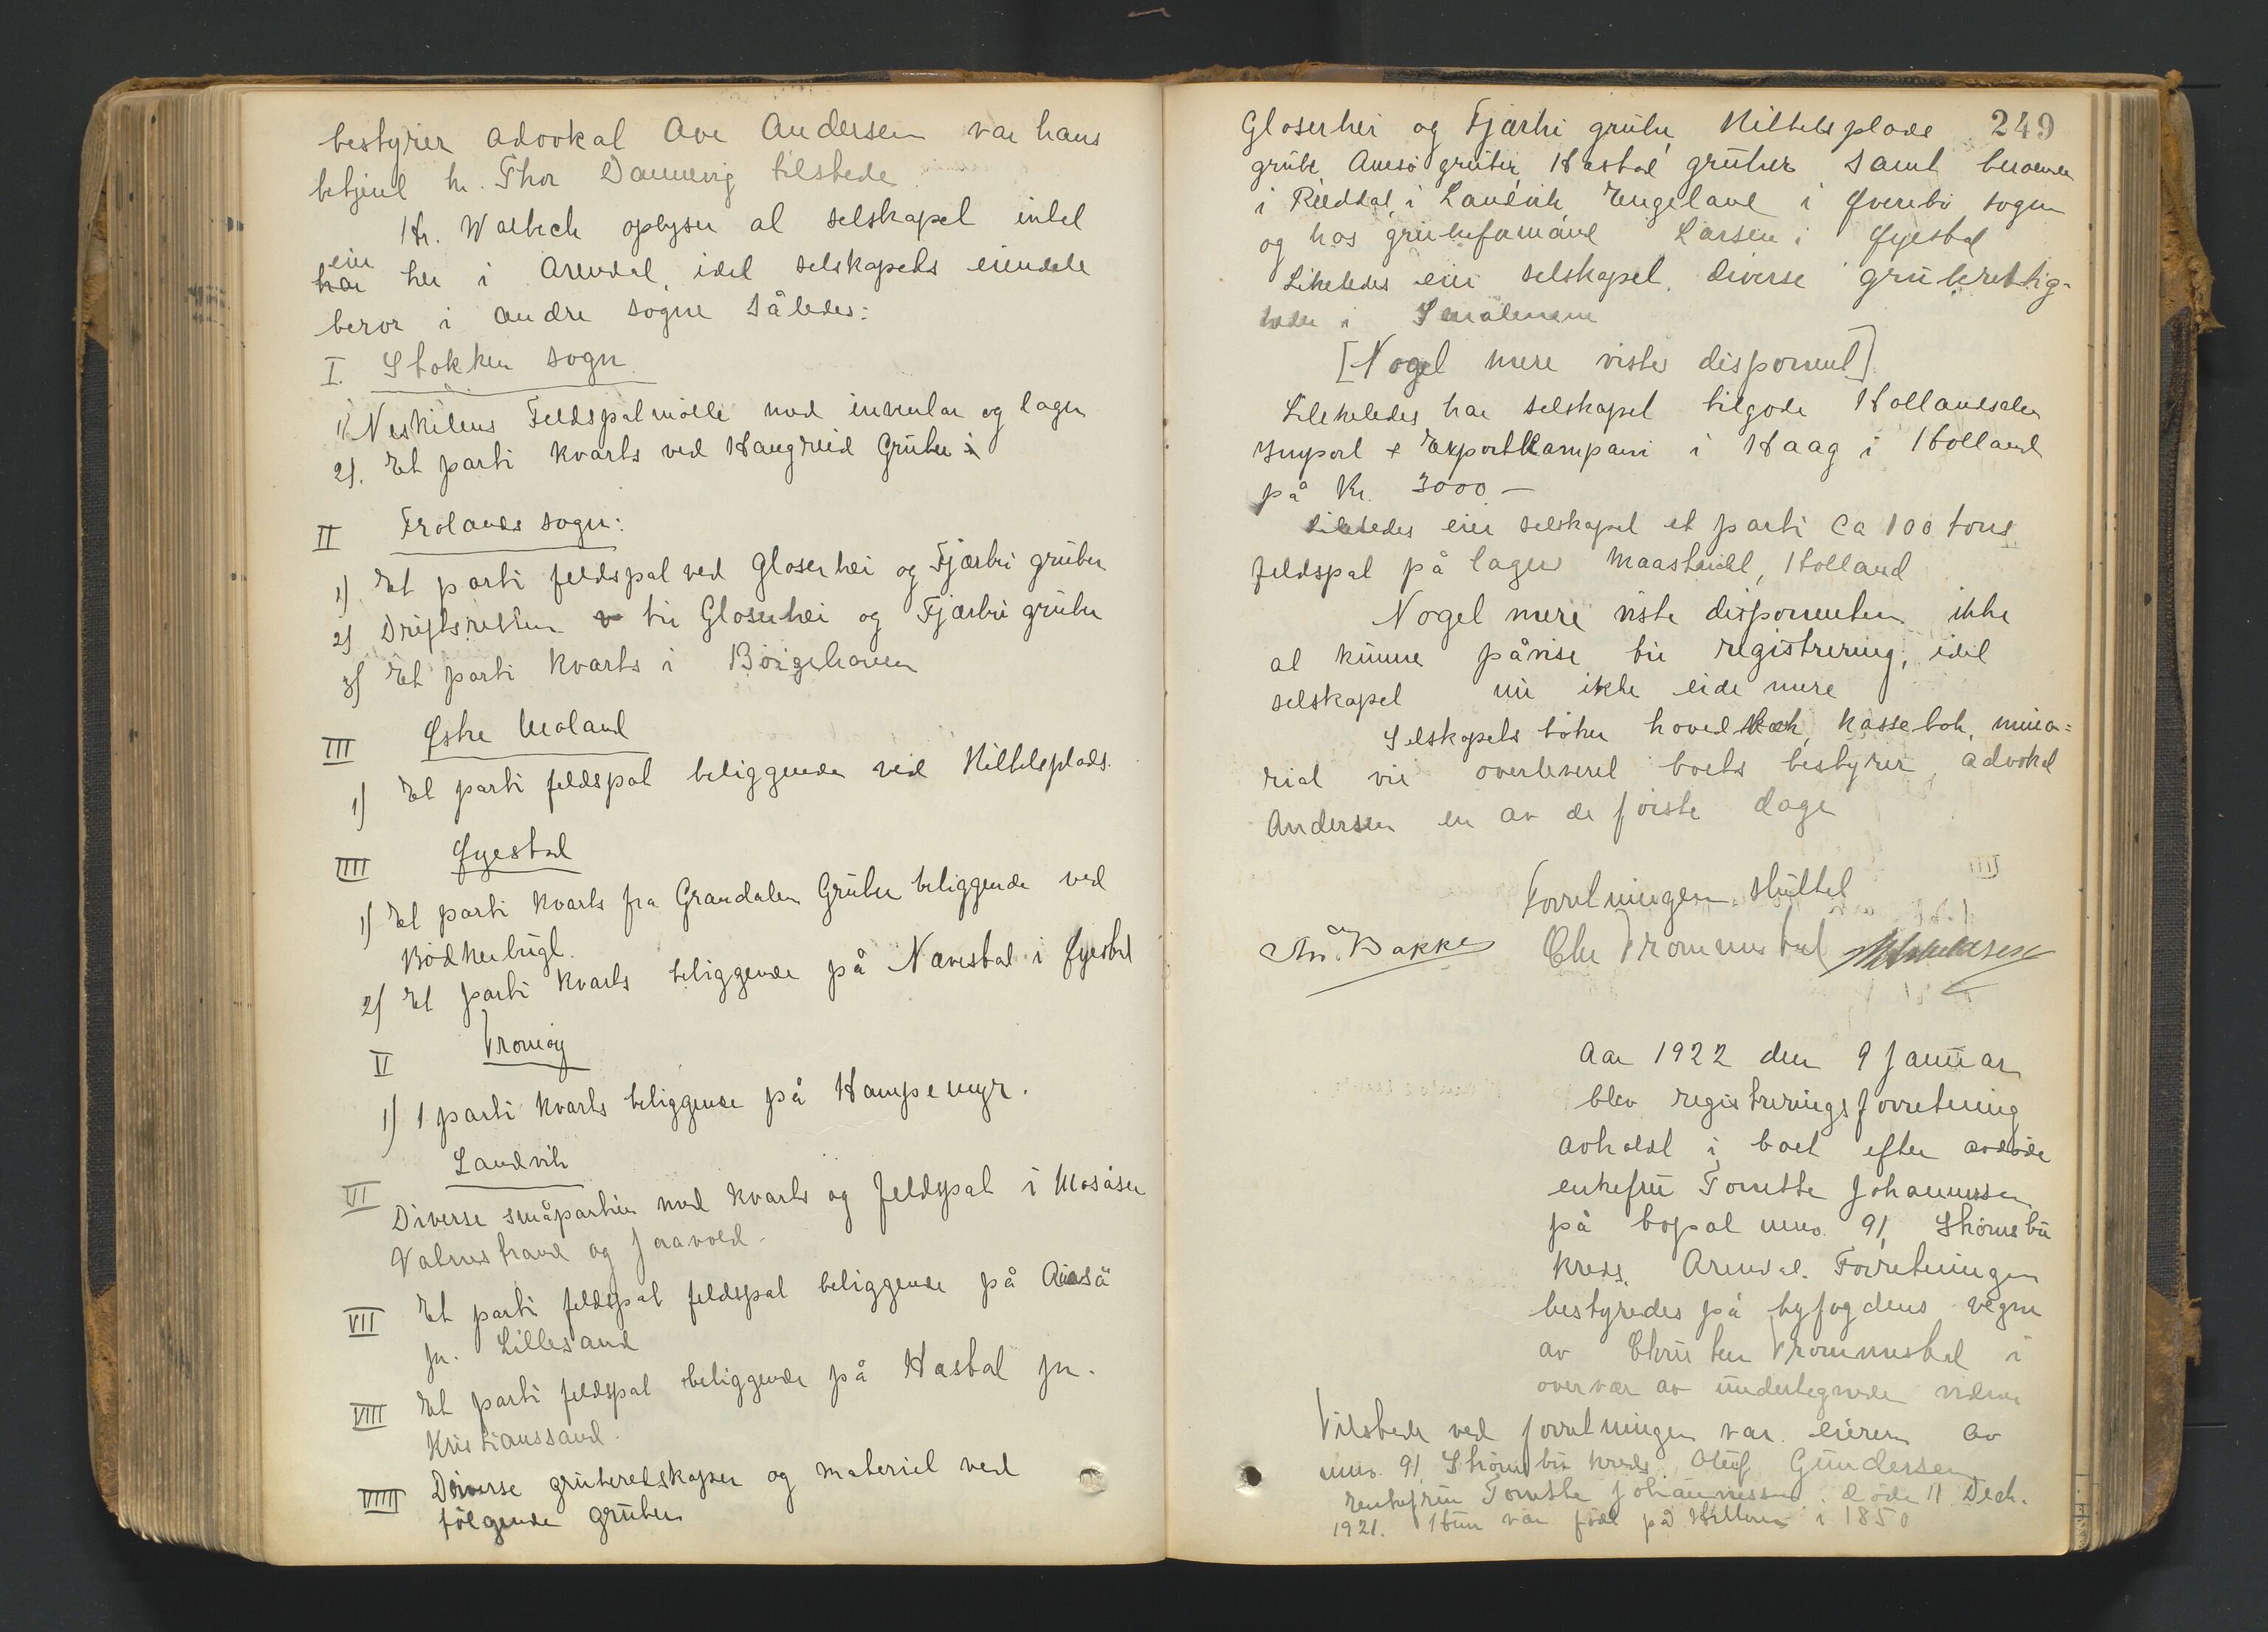 bestyrer advokat Ove Andersen var hans
betjent hr. Thor Dannevig tilstede
Hr. Walbeck oplyser at selskapet intet
eier
har her i Arendal, idet selskapets eiendele
beror i andre sogne således:
I. Stokken sogn
1) Neskilens Feldspatmølle med inventar og lager
2). Et parti kvarts ved Haugreid Gruber i
II Frolands sogn:
1) Et parti feldspat ved Gloserhei og Fjærbu gruber
2) Driftsretten v til Gloserhei og Fjærbu gruber
3) Et parti kvarts i Bøigehaven
III Østre Moland
1) Et parti feldspat beliggende ved Kittelsplads.
IIII Øyestad
1) Et parti kvarts fra Grandalen Gruber beliggende ved
Bødkerbugt.
2) Et parti kvarts beliggende på Nævestad i Øyestad
V Tromøy
1) 1 parti kvarts beliggende på Hampemyr.
Landvik
VI Diverse småpartier med kvarts og feldspat i Mosåsen
Valnestrand og Jaavold.
VII Et parti feldspat feldspat beliggende på Auesö
pr. Lillesand
VIII Et parti feldspat beliggende på Hastad pr.
Kristianssand.
VIIII Diverse gruberedskaper og materiel ved
følgende gruber
249
Gloserhei og Fjærbu gruber, Kittelsplads
grube, Auesö gruber, Hastad gruber samt beroende
i Reddal, i Landvik, Engeland i Øvrebö sogn
og hos grubeformand Larsen i Øyestad
Likeledes eier selskapet diverse gruberettig-
heder i Smålenene
[Noget mere viste disponent]
Likeledes har selskapet tilgode Hollandsalen
Import & Exportkompani i Haag i Holland
på Kr. 3000 –
Likeledes eier selskapet et parti ca 100 tons
feldspat på lager Maastricht, Holland
Noget mere viste disponenten ikke
at kunne påvise til registrering, idet
selskapet nu ikke eide mere
Selskapets bøker hovedbok, kassebok, memo=
rial vil overleveret boets bestyrer, advokat
Andersen en av de første dage
Forretningen sluttet
Th. Bakke Chr Trommestad
Aar 1922 den 9 Januar
blev registreringsforretning
avholdt i boet efter avdøde
enkefru Tomette Johannessen
på bopæl mno. 91, Strømsbu
kreds, Arendal. Forretningen
bestyredes på byfogdens vegne
av Christen Trommestad i
overvær av undertegnede vidner
Tilstede ved forretningen var eieren av
mno. 91 Strømsbu kreds Oluf Gundersen
Enkefru Tomette Johannessen døde 11 Decb.
1921. Hun var født på i 1850